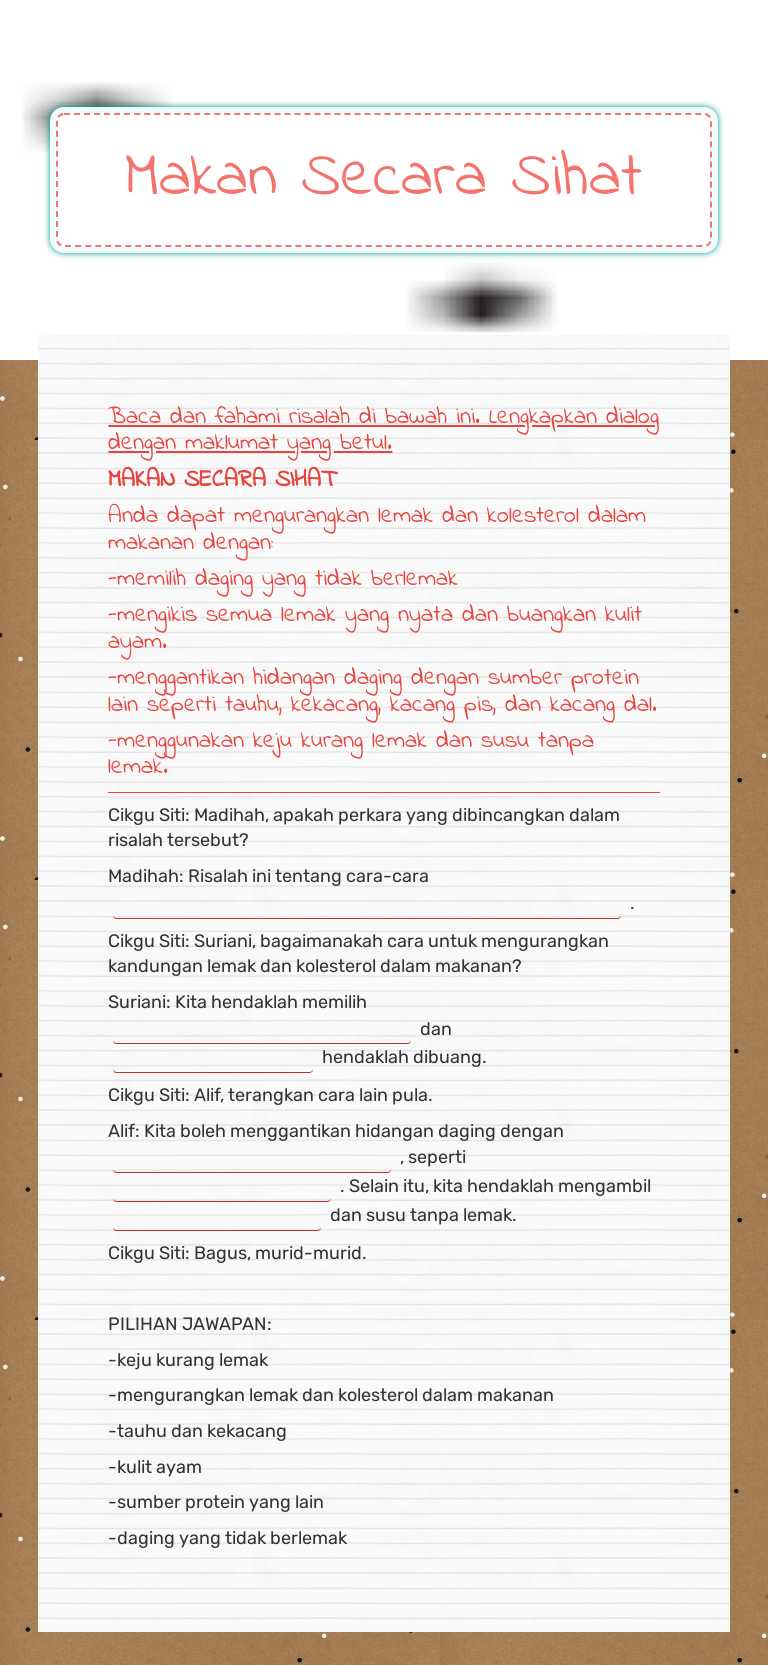 Makan Secara Sihat
Baca dan fahami risalah di bawah ini. Lengkapkan dialog
dengan maklumat yang betul.
MAKAN SECARA SIHAT
Anda dapat mengurangkan lemak dan kolesterol dalam
makanan dengan:
-memilih daging yang tidak berlemak
-mengikis semua lemak yang nyata dan buangkan kulit
ayam.
-menggantikan hidangan daging dengan sumber protein
lain seperti tauhu, kekacang, kacang pis, dan kacang dal.
-menggunakan keju kurang lemak dan susu tanpa
lemak.
Cikgu Siti: Madihah, apakah perkara yang dibincangkan dalam
risalah tersebut?
Madihah: Risalah ini tentang cara-cara
.
Cikgu Siti: Suriani, bagaimanakah cara untuk mengurangkan
kandungan lemak dan kolesterol dalam makanan?
Suriani: Kita hendaklah memilih
dan
hendaklah dibuang.
Cikgu Siti: Alif, terangkan cara lain pula.
Alif: Kita boleh menggantikan hidangan daging dengan
, seperti
. Selain itu, kita hendaklah mengambil
dan susu tanpa lemak.
Cikgu Siti: Bagus, murid-murid.
PILIHAN JAWAPAN:
-keju kurang lemak
-mengurangkan lemak dan kolesterol dalam makanan
-tauhu dan kekacang
-kulit ayam
-sumber protein yang lain
-daging yang tidak berlemak